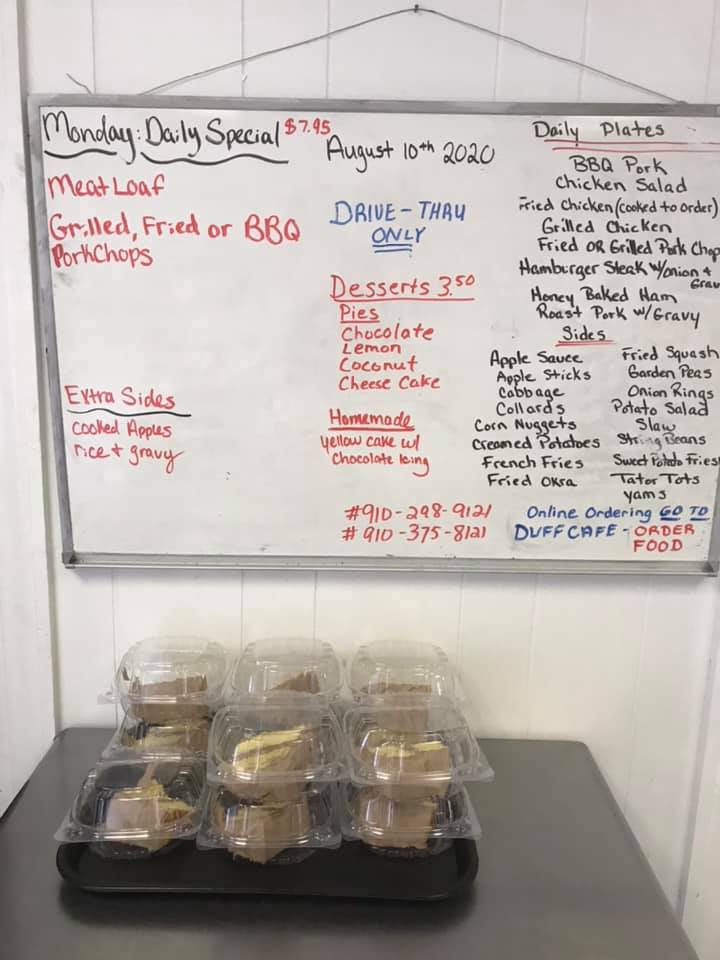 Monday: Daily Special $7.95
Meat Loaf
Grilled, Fried or BBQ
PorkChops
Extra Sides
cooked Apples
rice + gravy
August 10th 2020
DRIVE-THRU
ONLY
Desserts 3.50
Pies
Chocolate
Lemon
Coconut
Cheese Cake
Homemade
yellow cake w/
Chocolate Icing
#910-298-9121
#910-375-8121
Daily Plates
BBQ Pork
Chicken Salad
Fried Chicken (cooked to order)
Grilled Chicken
Fried OR Grilled Pork Chop
Hamburger Steak w/onion +
Grav
Honey Baked Ham
Roast Pork w/Gravy
Sides
Apple Sauce
Apple Sticks
Cabbage
Collards
Corn Nuggets
Creamed Potatoes
French Fries
Fried Okra
Fried Squash
Garden Peas
Onion Rings
Potato Salad
Slaw
String Beans
Sweet Potato Fries
Tator Tots
yams
Online Ordering GO TO
DUFFCAFE - ORDER
FOOD